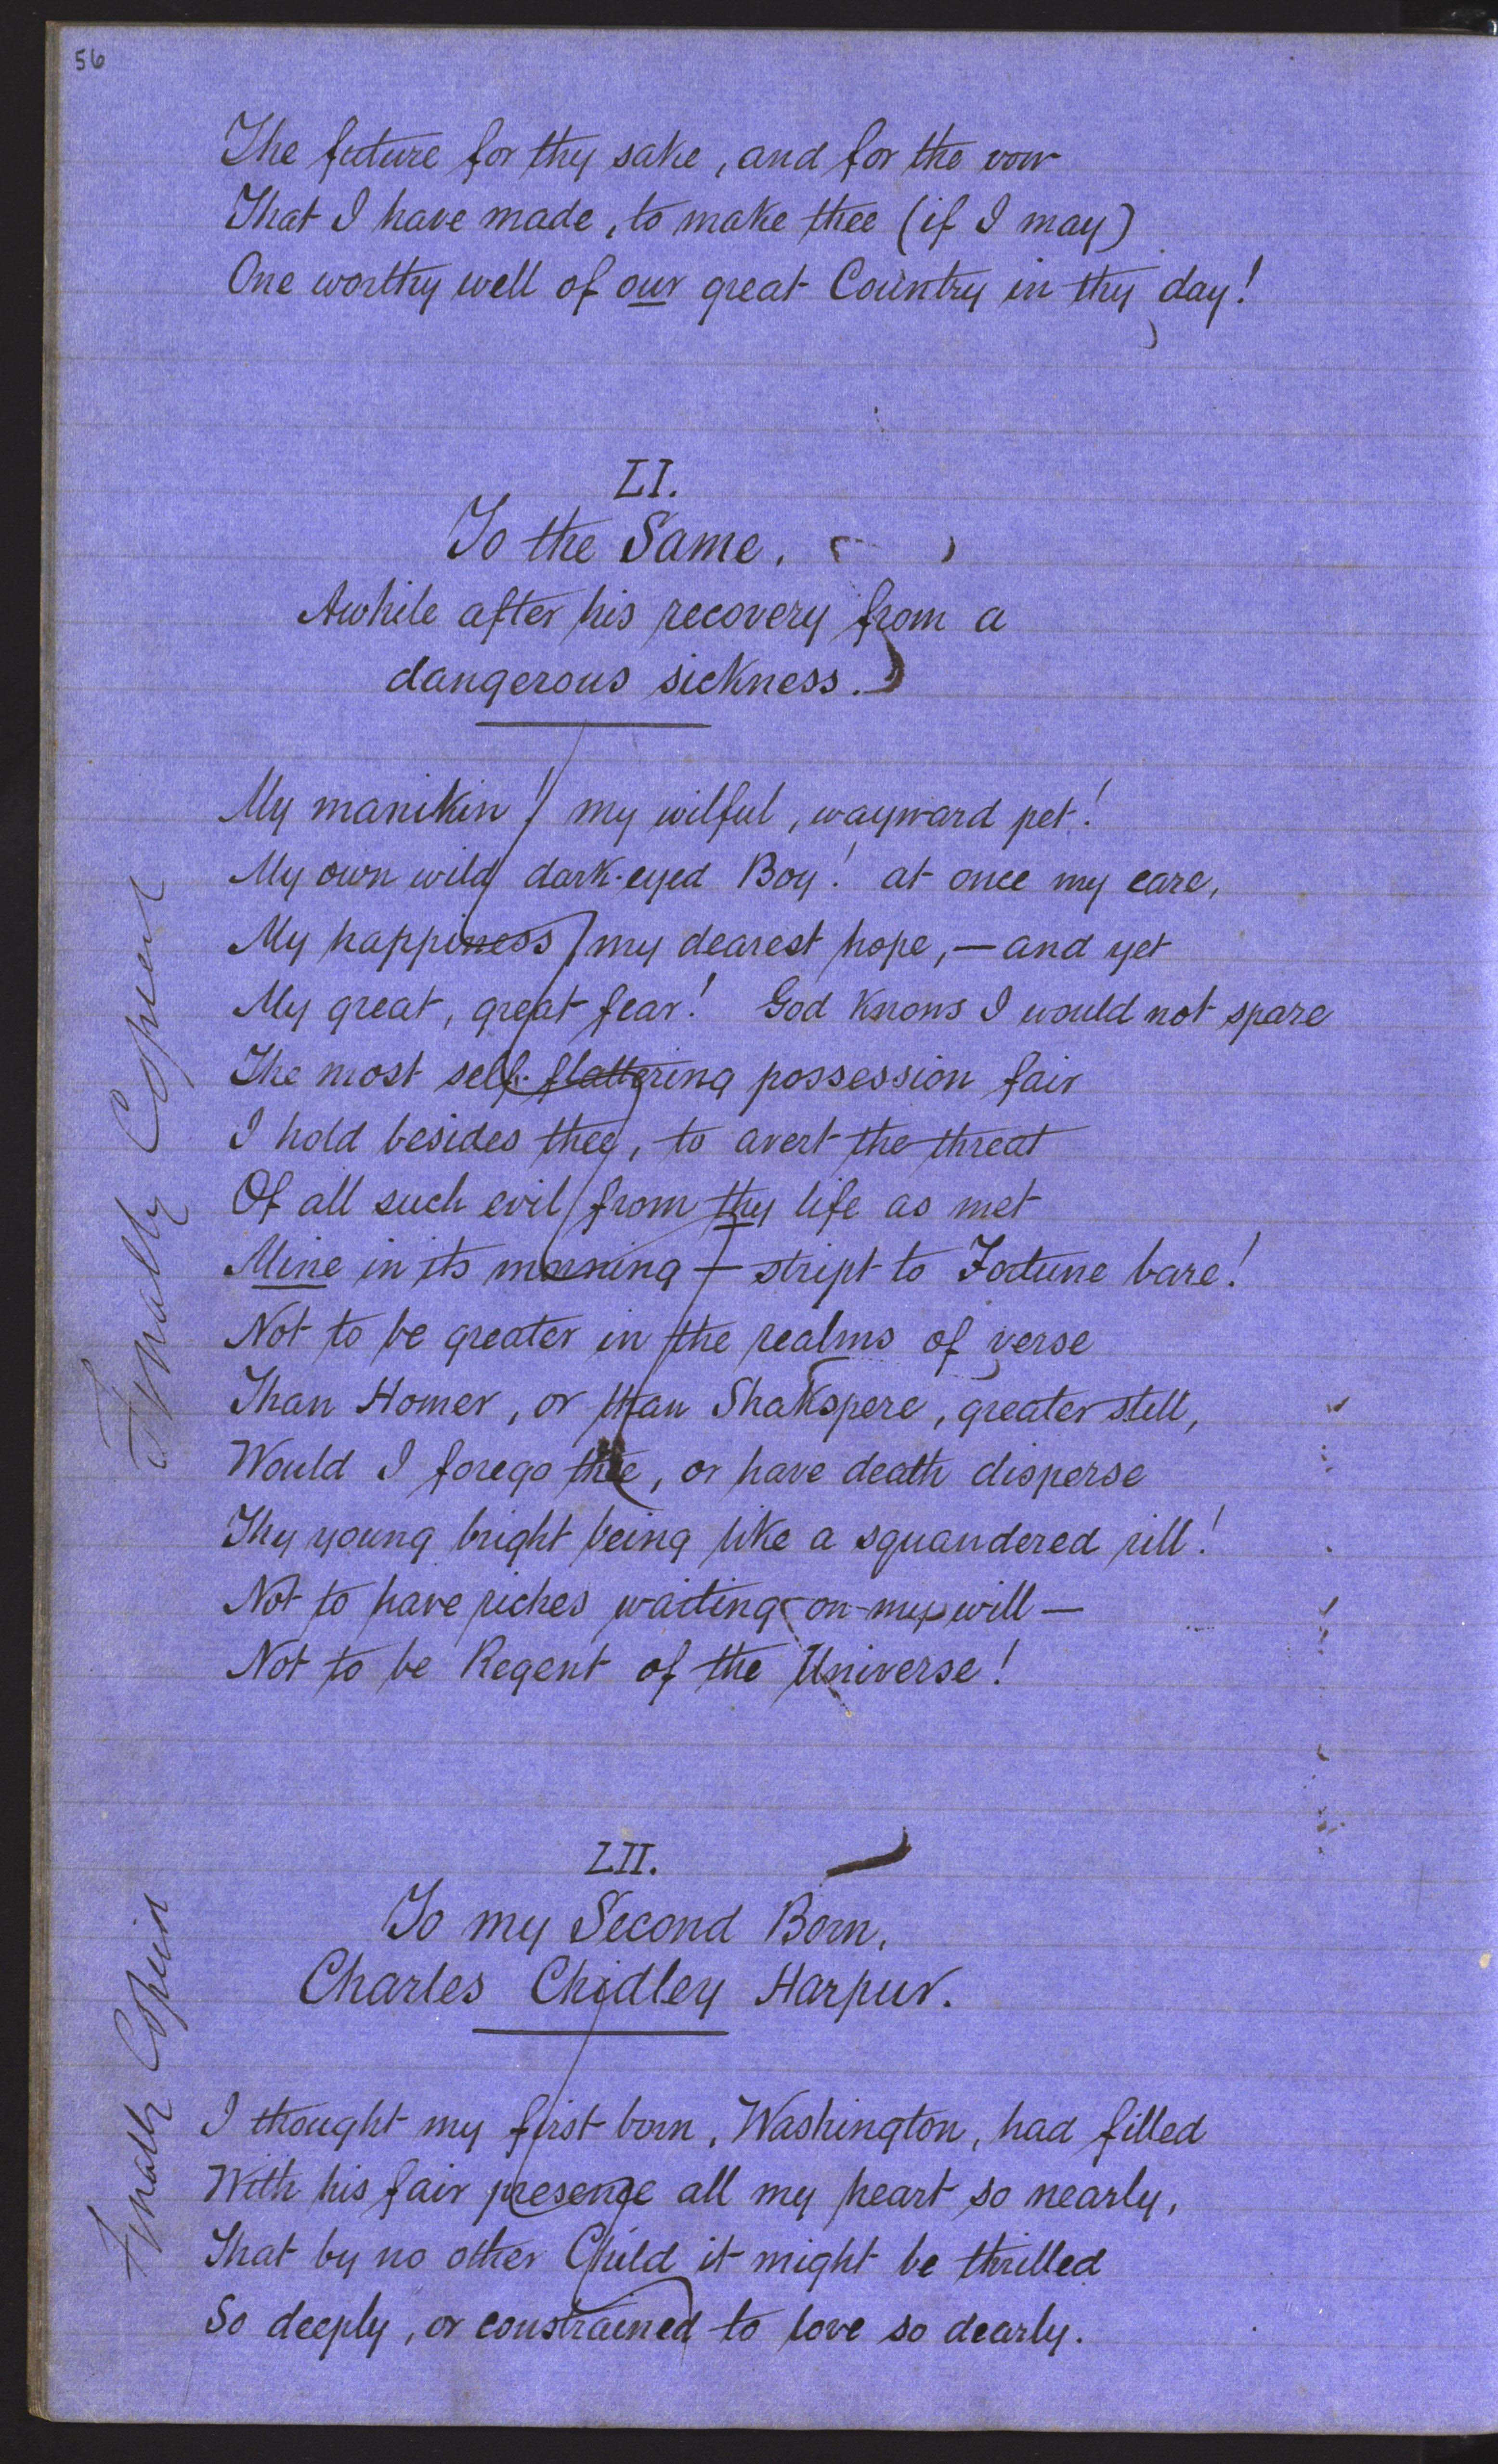 56
The future for thy sake, and for the vow
That I have made, to make thee (if I may)
One worthy well of our great Country in thy day!
LI.
To the Same,
Awhile after his recovery from a
dangerous sickness.
My manikin! my wilful, wayward pet!
My own wild dark-eyed Boy! at once my care,
My happiness, my dearest hope,—and yet
My great, great fear! God knows I would not spare
The most self-flattering possession fair
I hold besides thee, to avert the threat
Of all such evil from thy life as met
Mine in its morning—stript to Fortune bare!
Not to be greater in the realms of verse
Than Homer, or than Shakspere, greater still,
Would I forego thee, or have death disperse
Thy young bright being like a squandered rill!
Not to have riches waiting on my will—
Not to be Regent of the Universe!
Finally Copied
LII.
To my Second Born,
Charles Chidley Harpur.
I thought my first born, Washington, had filled
With his fair presence all my heart so nearly,
That by no other Child it might be thrilled
So deeply, or constrained to love so dearly.
Finally Copied